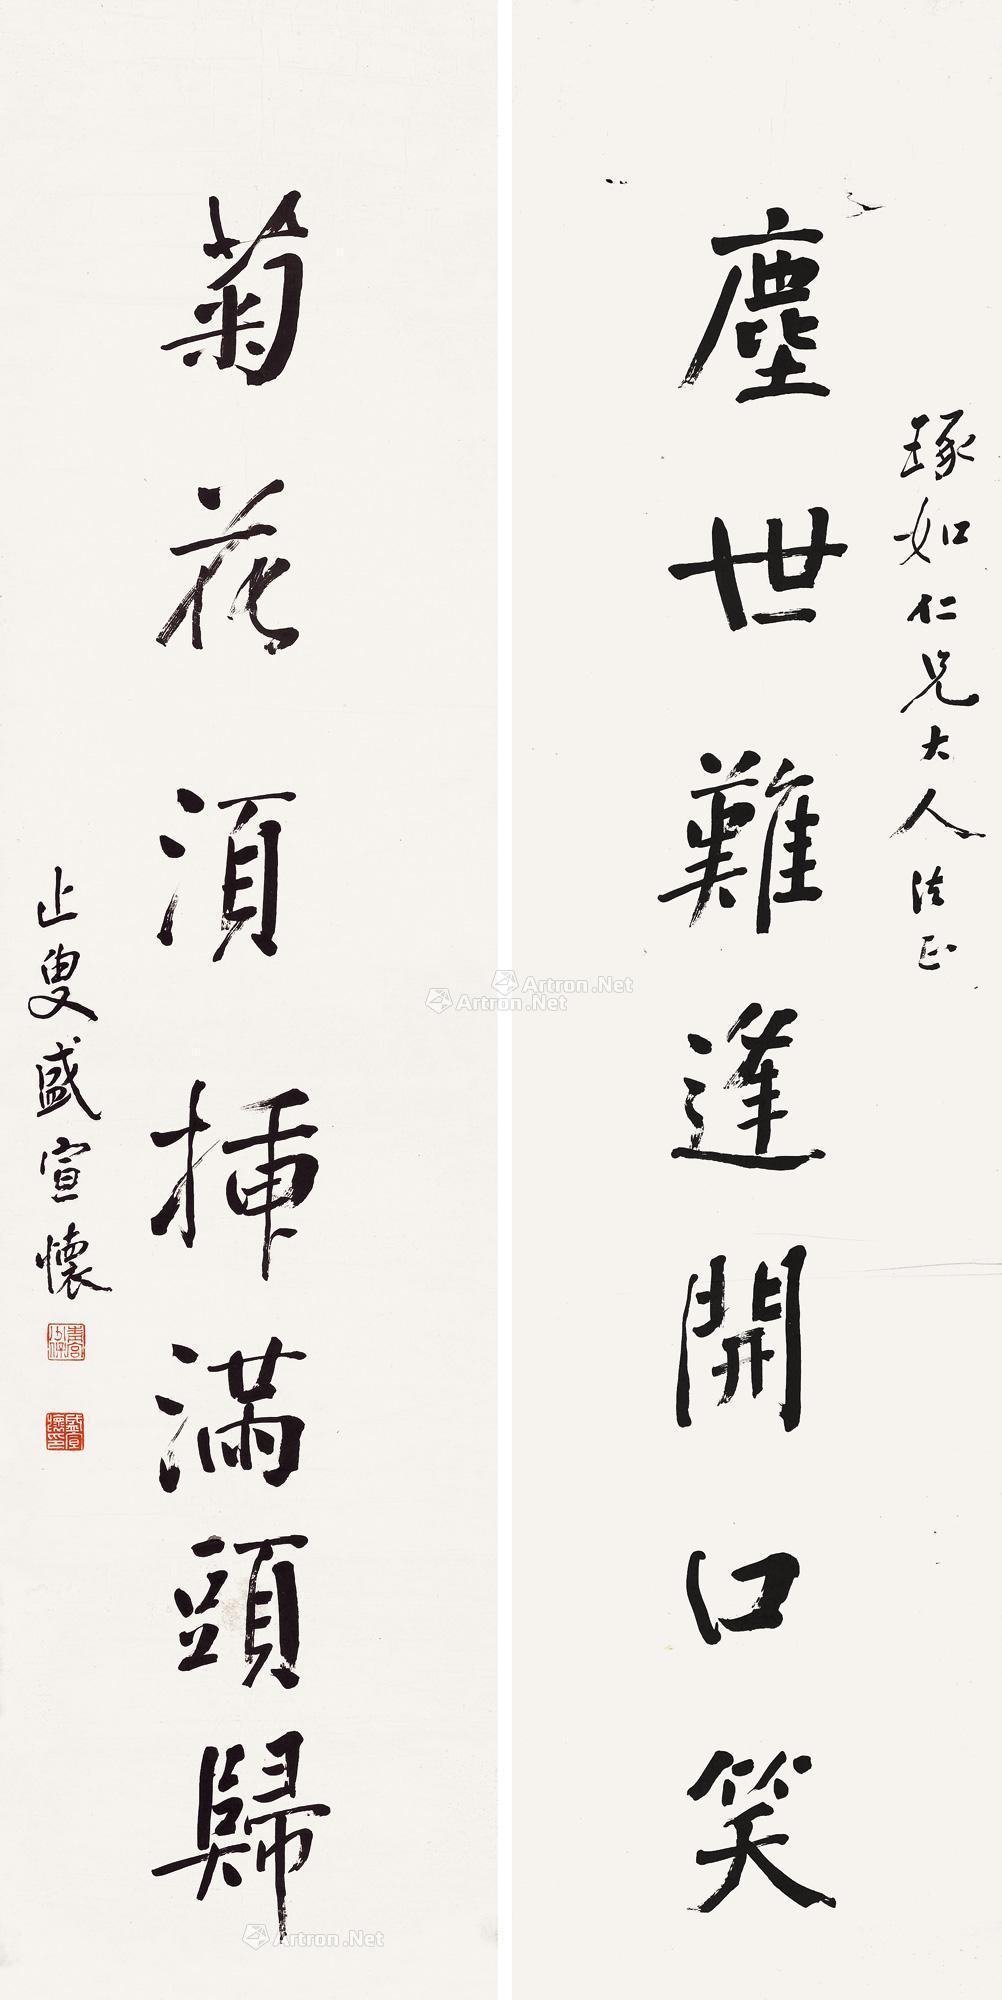 琢如仁兄大人法正
塵世難逢開口笑
菊花須插滿頭歸
止叟盛宣懷
青宮少保
盛宣懷印
Artron.Net
Artron.Net
Artron.Net